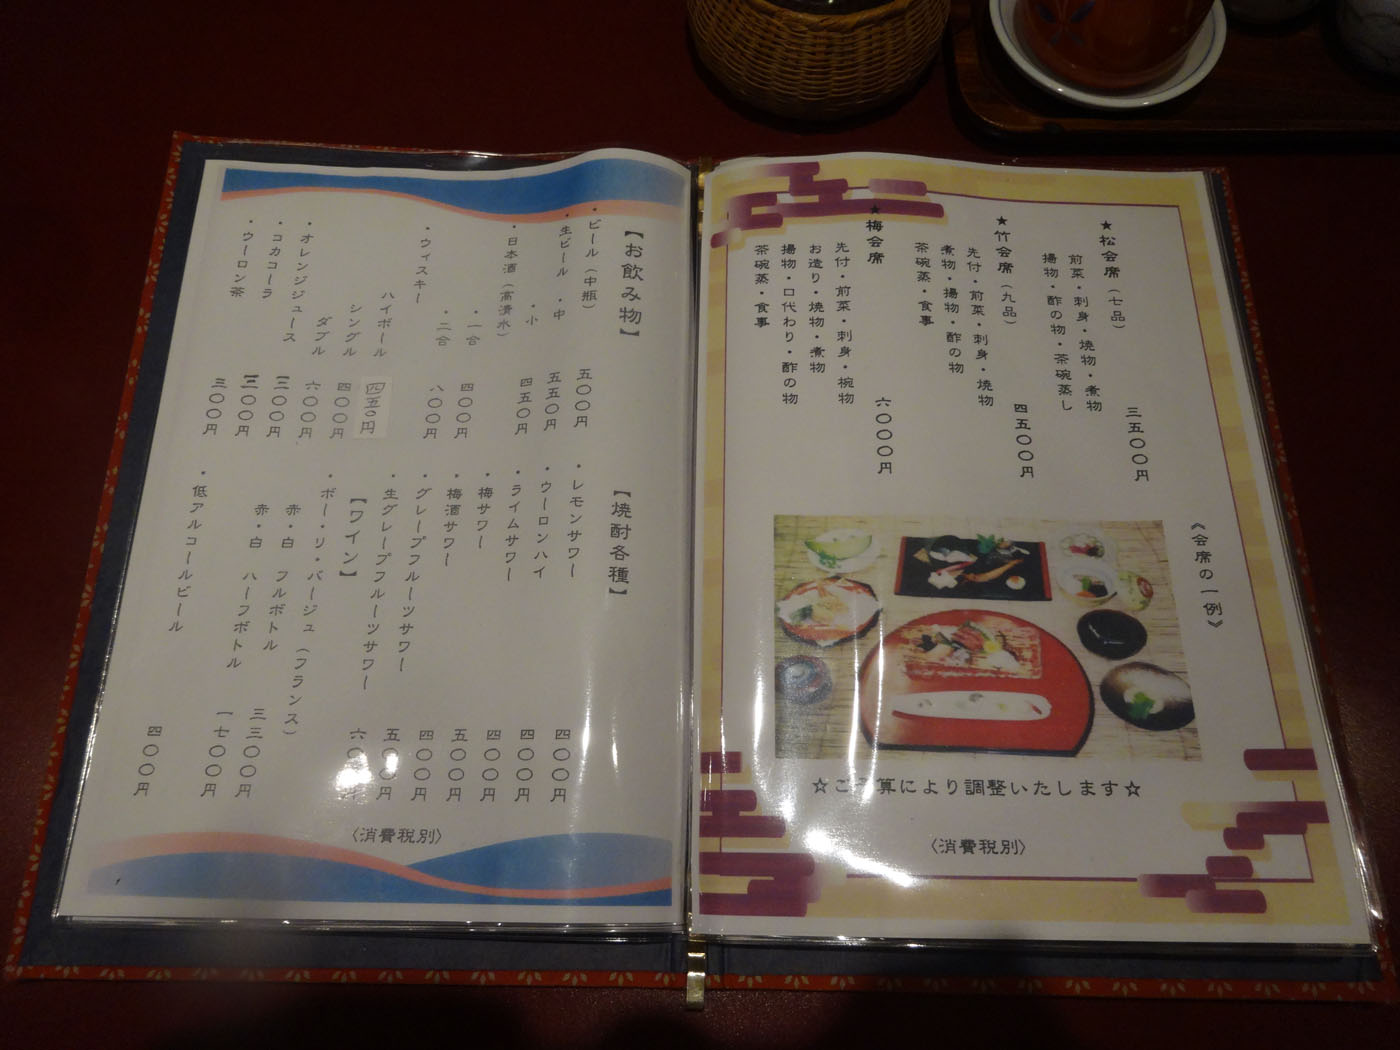 《会席の一例》
★松会席（七品）
前菜・刺身・焼物・煮物
揚物・酢の物・茶碗蒸し
三五〇〇円
★竹会席（九品）
先付・前菜・刺身・焼物
煮物・揚物・酢の物
茶碗蒸・食事
四五〇〇円
★梅会席
先付・前菜・刺身・椀物
お造り・焼物・煮物
揚物・口代わり・酢の物
茶碗蒸・食事
六〇〇〇円
☆ご予算により調整いたします☆
〈消費税別〉
【お飲み物】
・ビール（中瓶） 五〇〇円
・生ビール ・中 五五〇円
・小 四五〇円
・日本酒（高清水）
・一合 四〇〇円
・二合 八〇〇円
・ウィスキー
ハイボール 四五〇円
シングル 四〇〇円
ダブル 六〇〇円
・オレンジジュース 三〇〇円
・コカコーラ 三〇〇円
・ウーロン茶 三〇〇円
【焼酎各種】
・レモンサワー 四〇〇円
・ウーロンハイ 四〇〇円
・ライムサワー 四〇〇円
・梅サワー 五〇〇円
・梅酒サワー 四〇〇円
・グレープフルーツサワー 五〇〇円
・生グレープフルーツサワー 六〇〇円
【ワイン】
・ボー・リ・バージュ（フランス）
赤・白 フルボトル 三三〇〇円
赤・白 ハーフボトル 一七〇〇円
・低アルコールビール 四〇〇円
〈消費税別〉